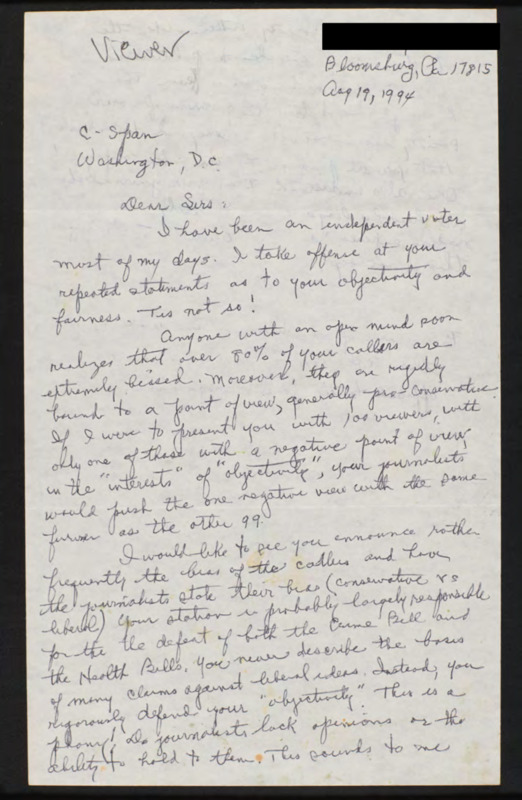 Viewer
Bloomsburg, Pa 17815
Aug 19, 1994
C-Span
Washington, D.C.
Dear Sirs:
I have been an independent voter
most of my days. I take offense at your
repeated statements as to your objectivity and
fairness. Tis not so!
Anyone with an open mind soon
realizes that over 80% of your callers are
extremely biased. Moreover, they are rigidly
bound to a point of view, generally pro-conservative.
If I were to present you with 100 viewers, with
only one of those with a negative point of view,
in the "interests" of "objectivity", your journalists
would push the one negative view with the same
furver as the other 99.
I would like to see you announce rather
frequently the bias of the callers and have
the journalists state their bias (conservative vs
liberal) Your station is probably largely responsible
for the the defeat of both the Crime Bill and
the Health Bills. You never describe the basis
of many claims against liberal ideas. Instead, you
vigorously defend your "objectivity". This is a
phony! Do journalists lack opinions or the
ability to hold to them. This sounds to me